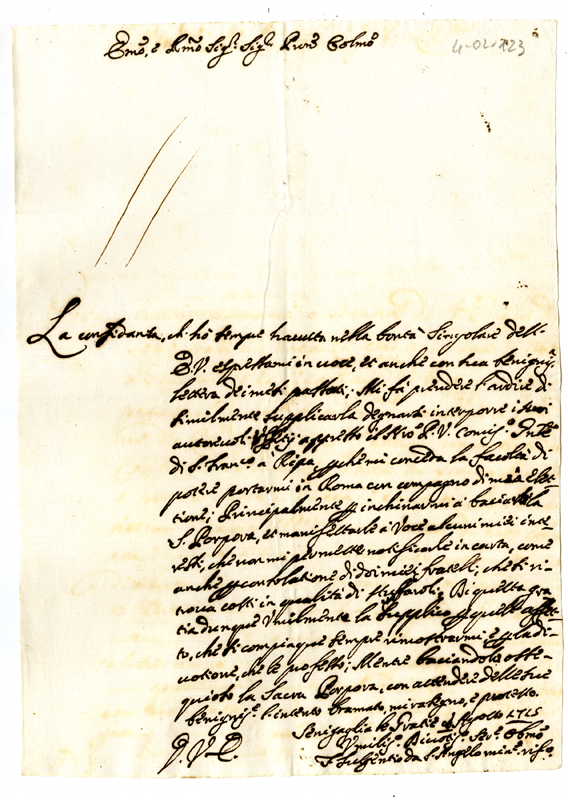 Emõ, e Rmõ Sig.r Sig.r Prõn Colmõ
4-02-723
La confidanza, ch'hò sempre havuta nella bontà singolare dell'
E. V. espettami in voce, et anche con sua benignis.ma
lettera de i mesi passati; Mi fà prendere l'ardire di
similmente supplicarla degnarsi interporre i suoi
autorevoli appresso il P. V. Comis.o
di S. Franc.o à Ripa, mi conceda la facoltà di
potere portarmi in Roma con compagno di mia elet-
tione; Principalmente p inchinarmi à baciar la
S. Porpora, et manifestarle à voce alcuni miei inte-
ressi, che non mi permette notificarle in carta, come
anche p consolatione di doi miei fratelli, che si ri-
trova costì in qualità di Di questa gra-
tia dunque umilmente la supplico p quell' affet-
to, che si compiaque sempre rimostrarmi, e p la di-
votione, che le professo; Mentre baciandole osse-
quioso la Sacra Porpora, con attendere dalle sue
benignis.e l'intento bramato, mi rassegno, e protesto
D. V. E.
Senigaglia le Gratie Agosto 1715
Umilis.o Divotis.o Ser.e Obmõ
F. Fulgentio da S. Angelo min.e rifo.